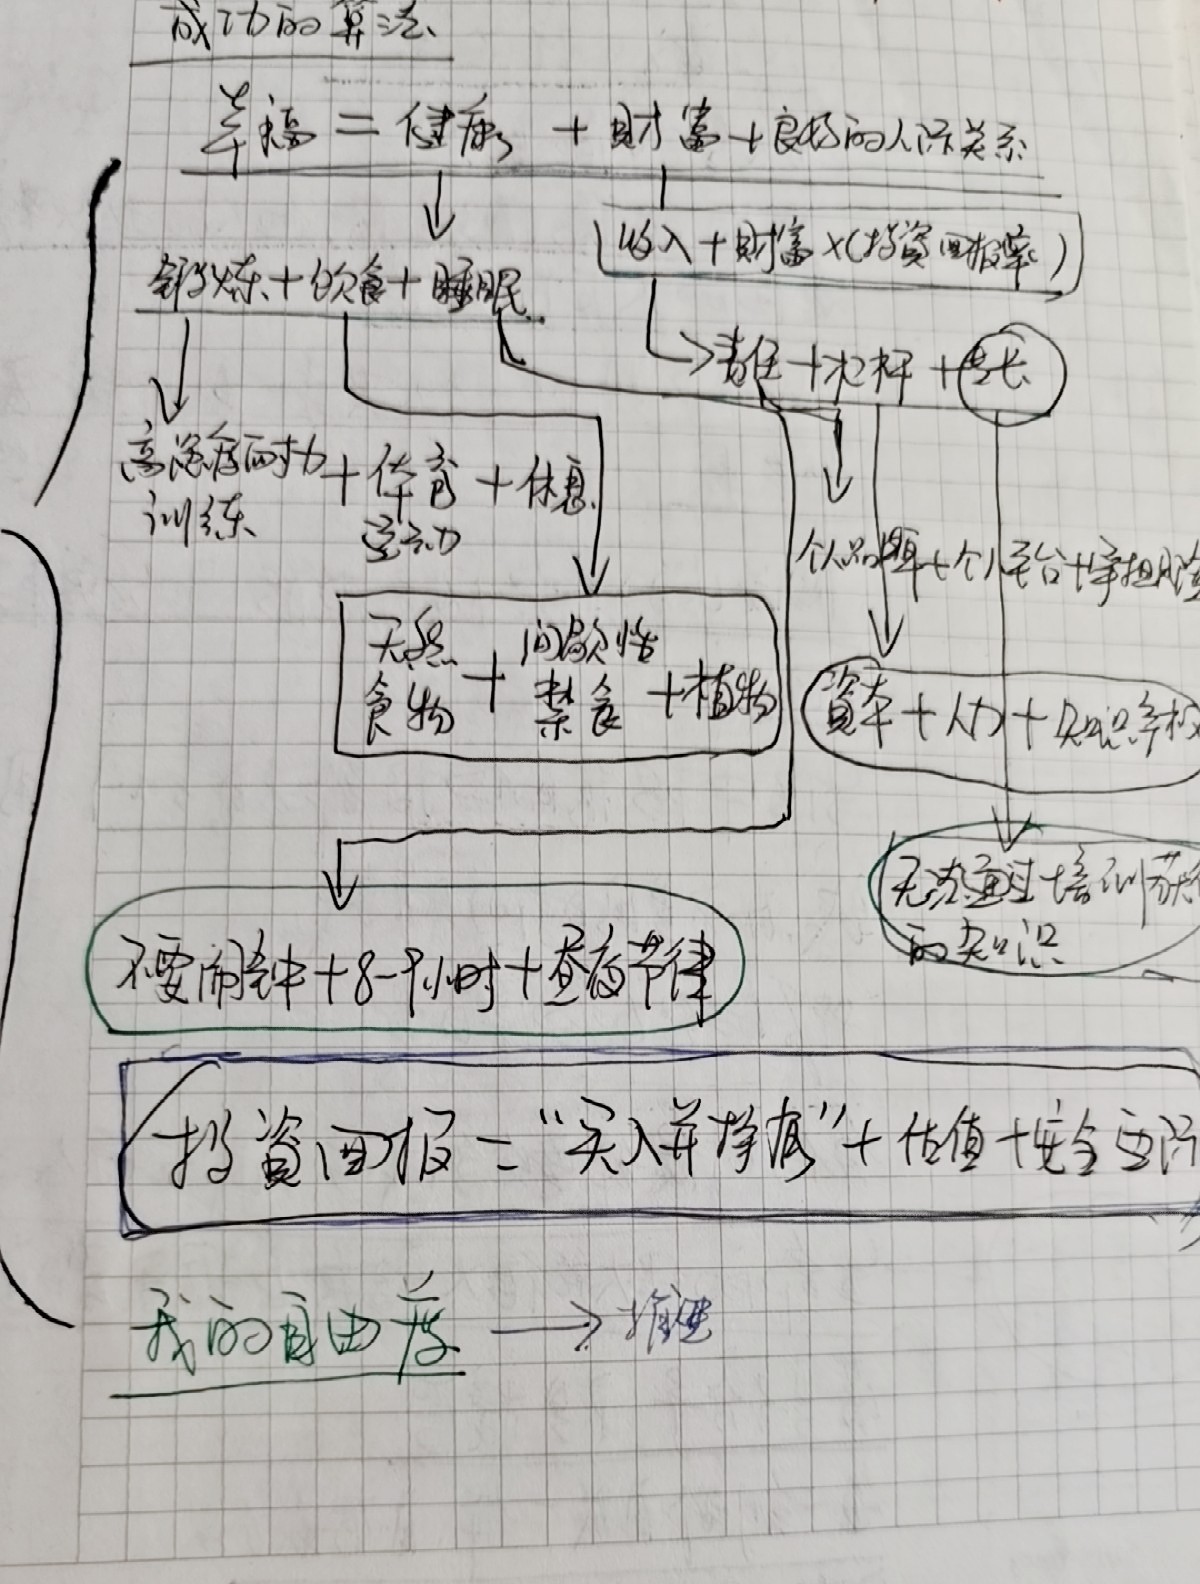 成功的算法
幸福 = 健康 + 财富 + 良好的人际关系
收入 + 财富 ×(投资回报率)
锻炼 + 饮食 + 睡眠
责任 + 杠杆 + 专长
高强度耐力 + 体育 + 休息
训练 运动
个人品牌 + 个人平台 + 承担风
天然 + 间歇性 + 植物
食物 禁食
资本 + 人力 + 知识产权
无法通过培训获
的知识
不要闹钟 + 8-9小时 + 昼夜节律
投资回报 = “买入并持有” + 估值 + 安全边际
我的自由度 → 推进